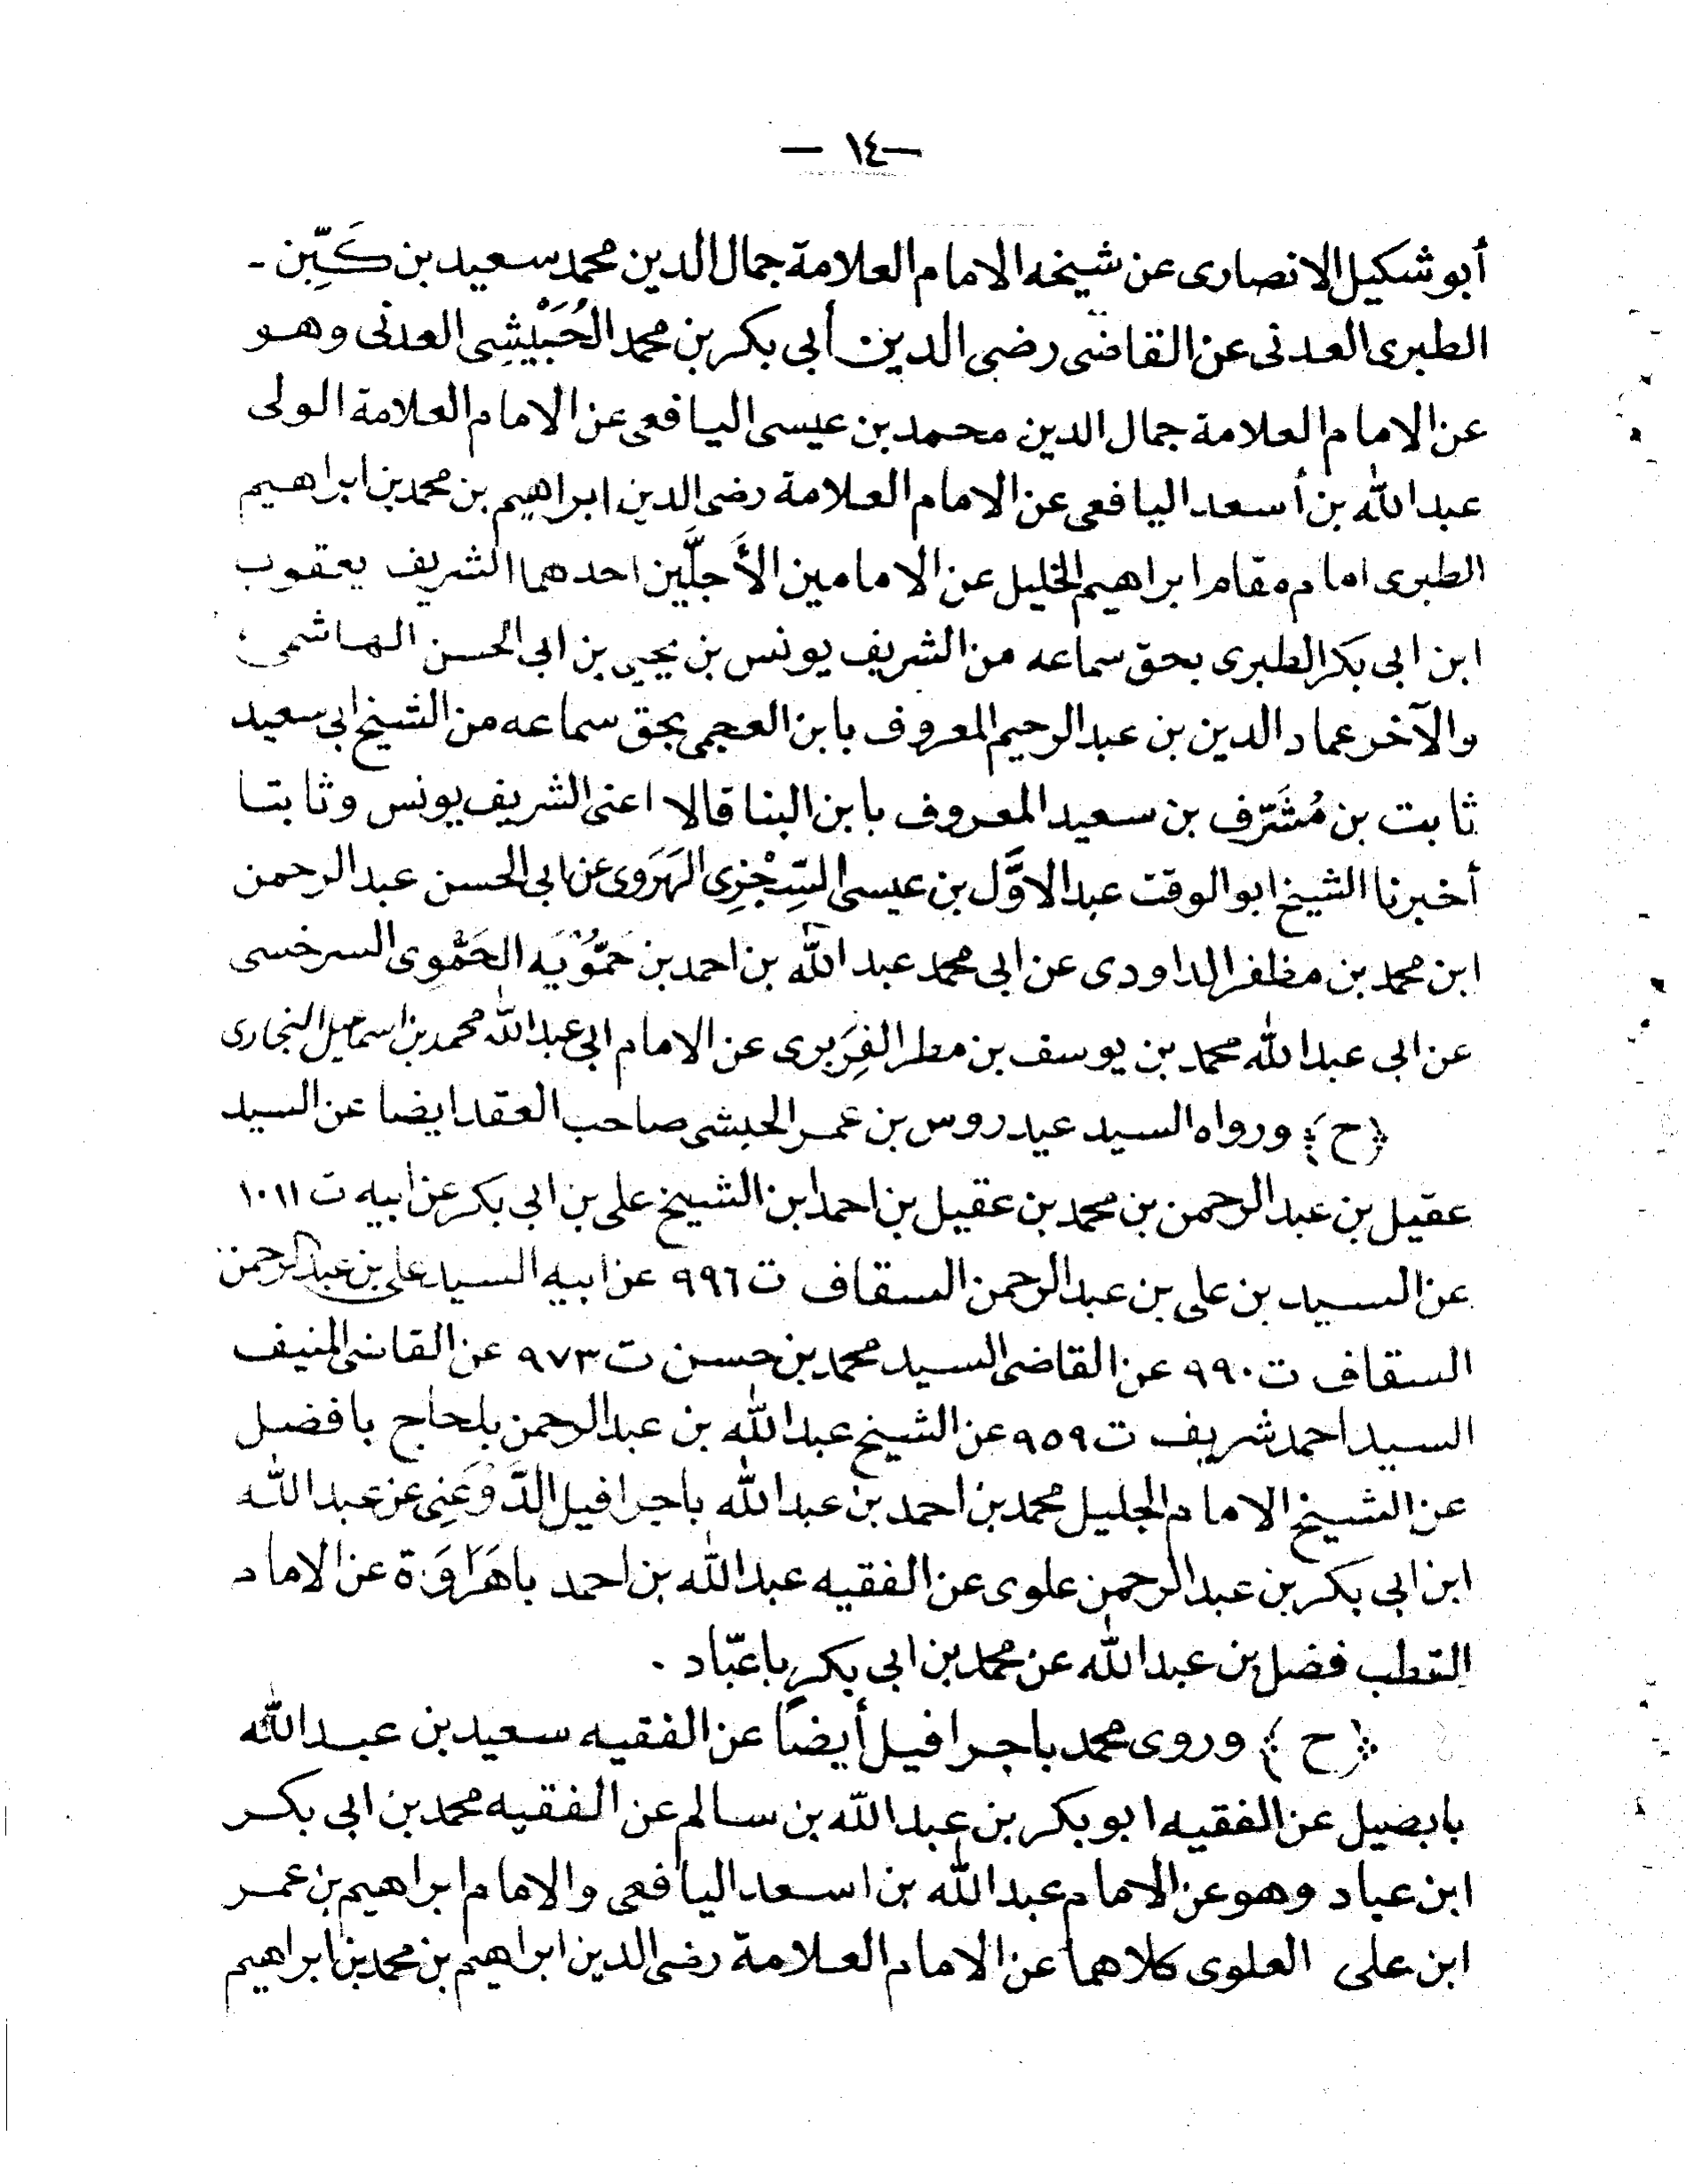 — ١٤ —
أبو شكيل الانصارى عن شيخه الامام العلامة جمال الدين محمد سعيد بن كَبِّن -
الطبرى العدنى عن القاضى رضى الدين أبى بكر بن محمد الحُبَيْشِى العدنى وهو
عن الامام العلامة جمال الدين محمد بن عيسى اليافعى عن الامام العلامة الولى
عبد الله بن أسعد اليافعى عن الامام العلامة رضى الدين ابراهيم بن محمد بن ابراهيم
الطبرى امام مقام ابراهيم الخليل عن الامامين الأَجلَّين احدهما الشريف يعقوب
ابن ابى بكر الطبرى بحق سماعه من الشريف يونس بن يحيى بن ابى الحسن الهاشمى
والآخر عماد الدين بن عبد الرحيم المعروف بابن العجمى بحق سماعه من الشيخ ابى سعيد
ثابت بن مُشَرَّف بن سعيد المعروف بابن البنا قالا اعنى الشريف يونس وثابتا
أخبرنا الشيخ ابو الوقت عبد الاوَّل بن عيسى السِّجْزِى الهَرَوى عن ابى الحسن عبد الرحمن
ابن محمد بن مظفر الداودى عن ابى محمد عبد الله بن احمد بن حَمُّوْيَه الحَمُّوى السرخسى
عن ابى عبد الله محمد بن يوسف بن مطر الفِرَبرى عن الامام ابى عبد الله محمد بن اسماعيل البخارى
﴿ح﴾ ورواه السيد عيدروس بن عمر الحبشى صاحب العقد ايضا عن السيد
عقيل بن عبد الرحمن بن محمد بن عقيل بن احمد ابن الشيخ على بن ابى بكر عن ابيه ت ١٠١١
عن السيد بن على بن عبد الرحمن السقاف ت ٩٩٦ عن ابيه السيد على بن عبد الرحمن
السقاف ت ٩٩٠ عن القاضى السيد محمد بن حسن ت ٩٧٣ عن القاضى المنيف
السيد احمد شريف ت ٩٥٩ عن الشيخ عبد الله بن عبد الرحمن بلحاج بافضل
عن الشيخ الامام الجليل محمد بن احمد بن عبد الله باجرافيل الدَّوْعَنِى عن عبد الله
ابن ابى بكر بن عبد الرحمن علوى عن الفقيه عبد الله بن احمد باهَرَاوَة عن الامام
القطب فضل بن عبد الله عن محمد بن ابى بكر باعبّاد .
﴿ح﴾ وروى محمد باجرافيل أيضاً عن الفقيه سعيد بن عبد الله
بابصيل عن الفقيه ابو بكر بن عبد الله بن سالم عن الفقيه محمد بن ابى بكر
ابن عباد وهو عن الامام عبد الله بن اسعد اليافعى والامام ابراهيم بن عمر
ابن على العلوى كلاهما عن الامام العلامة رضى الدين ابراهيم بن محمد بن ابراهيم